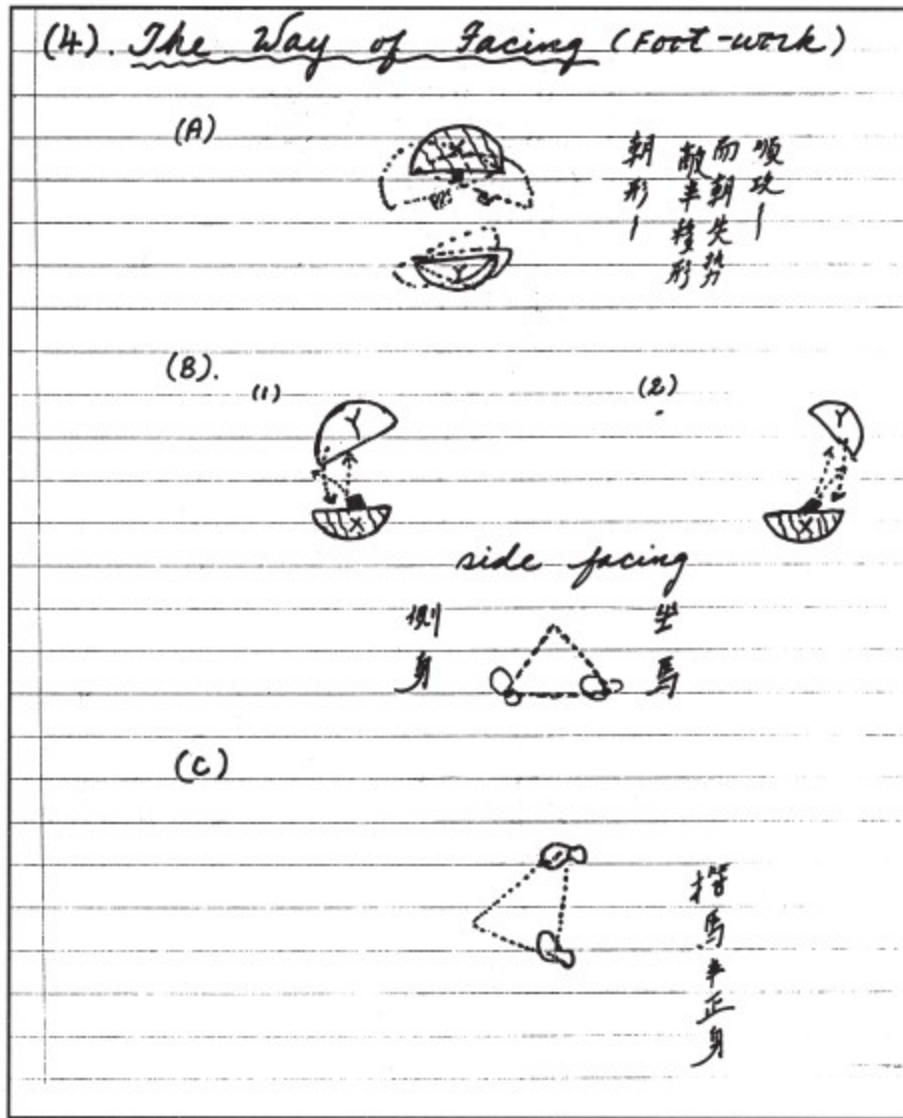 (4). The Way of Facing (Foot-work)
(A)
X
Y
順攻
而朝失勢
敵半轉形
朝形
(B).
(1)
(2)
Y
Y
X
X
side facing
側身
坐馬
(C)
馬半正身